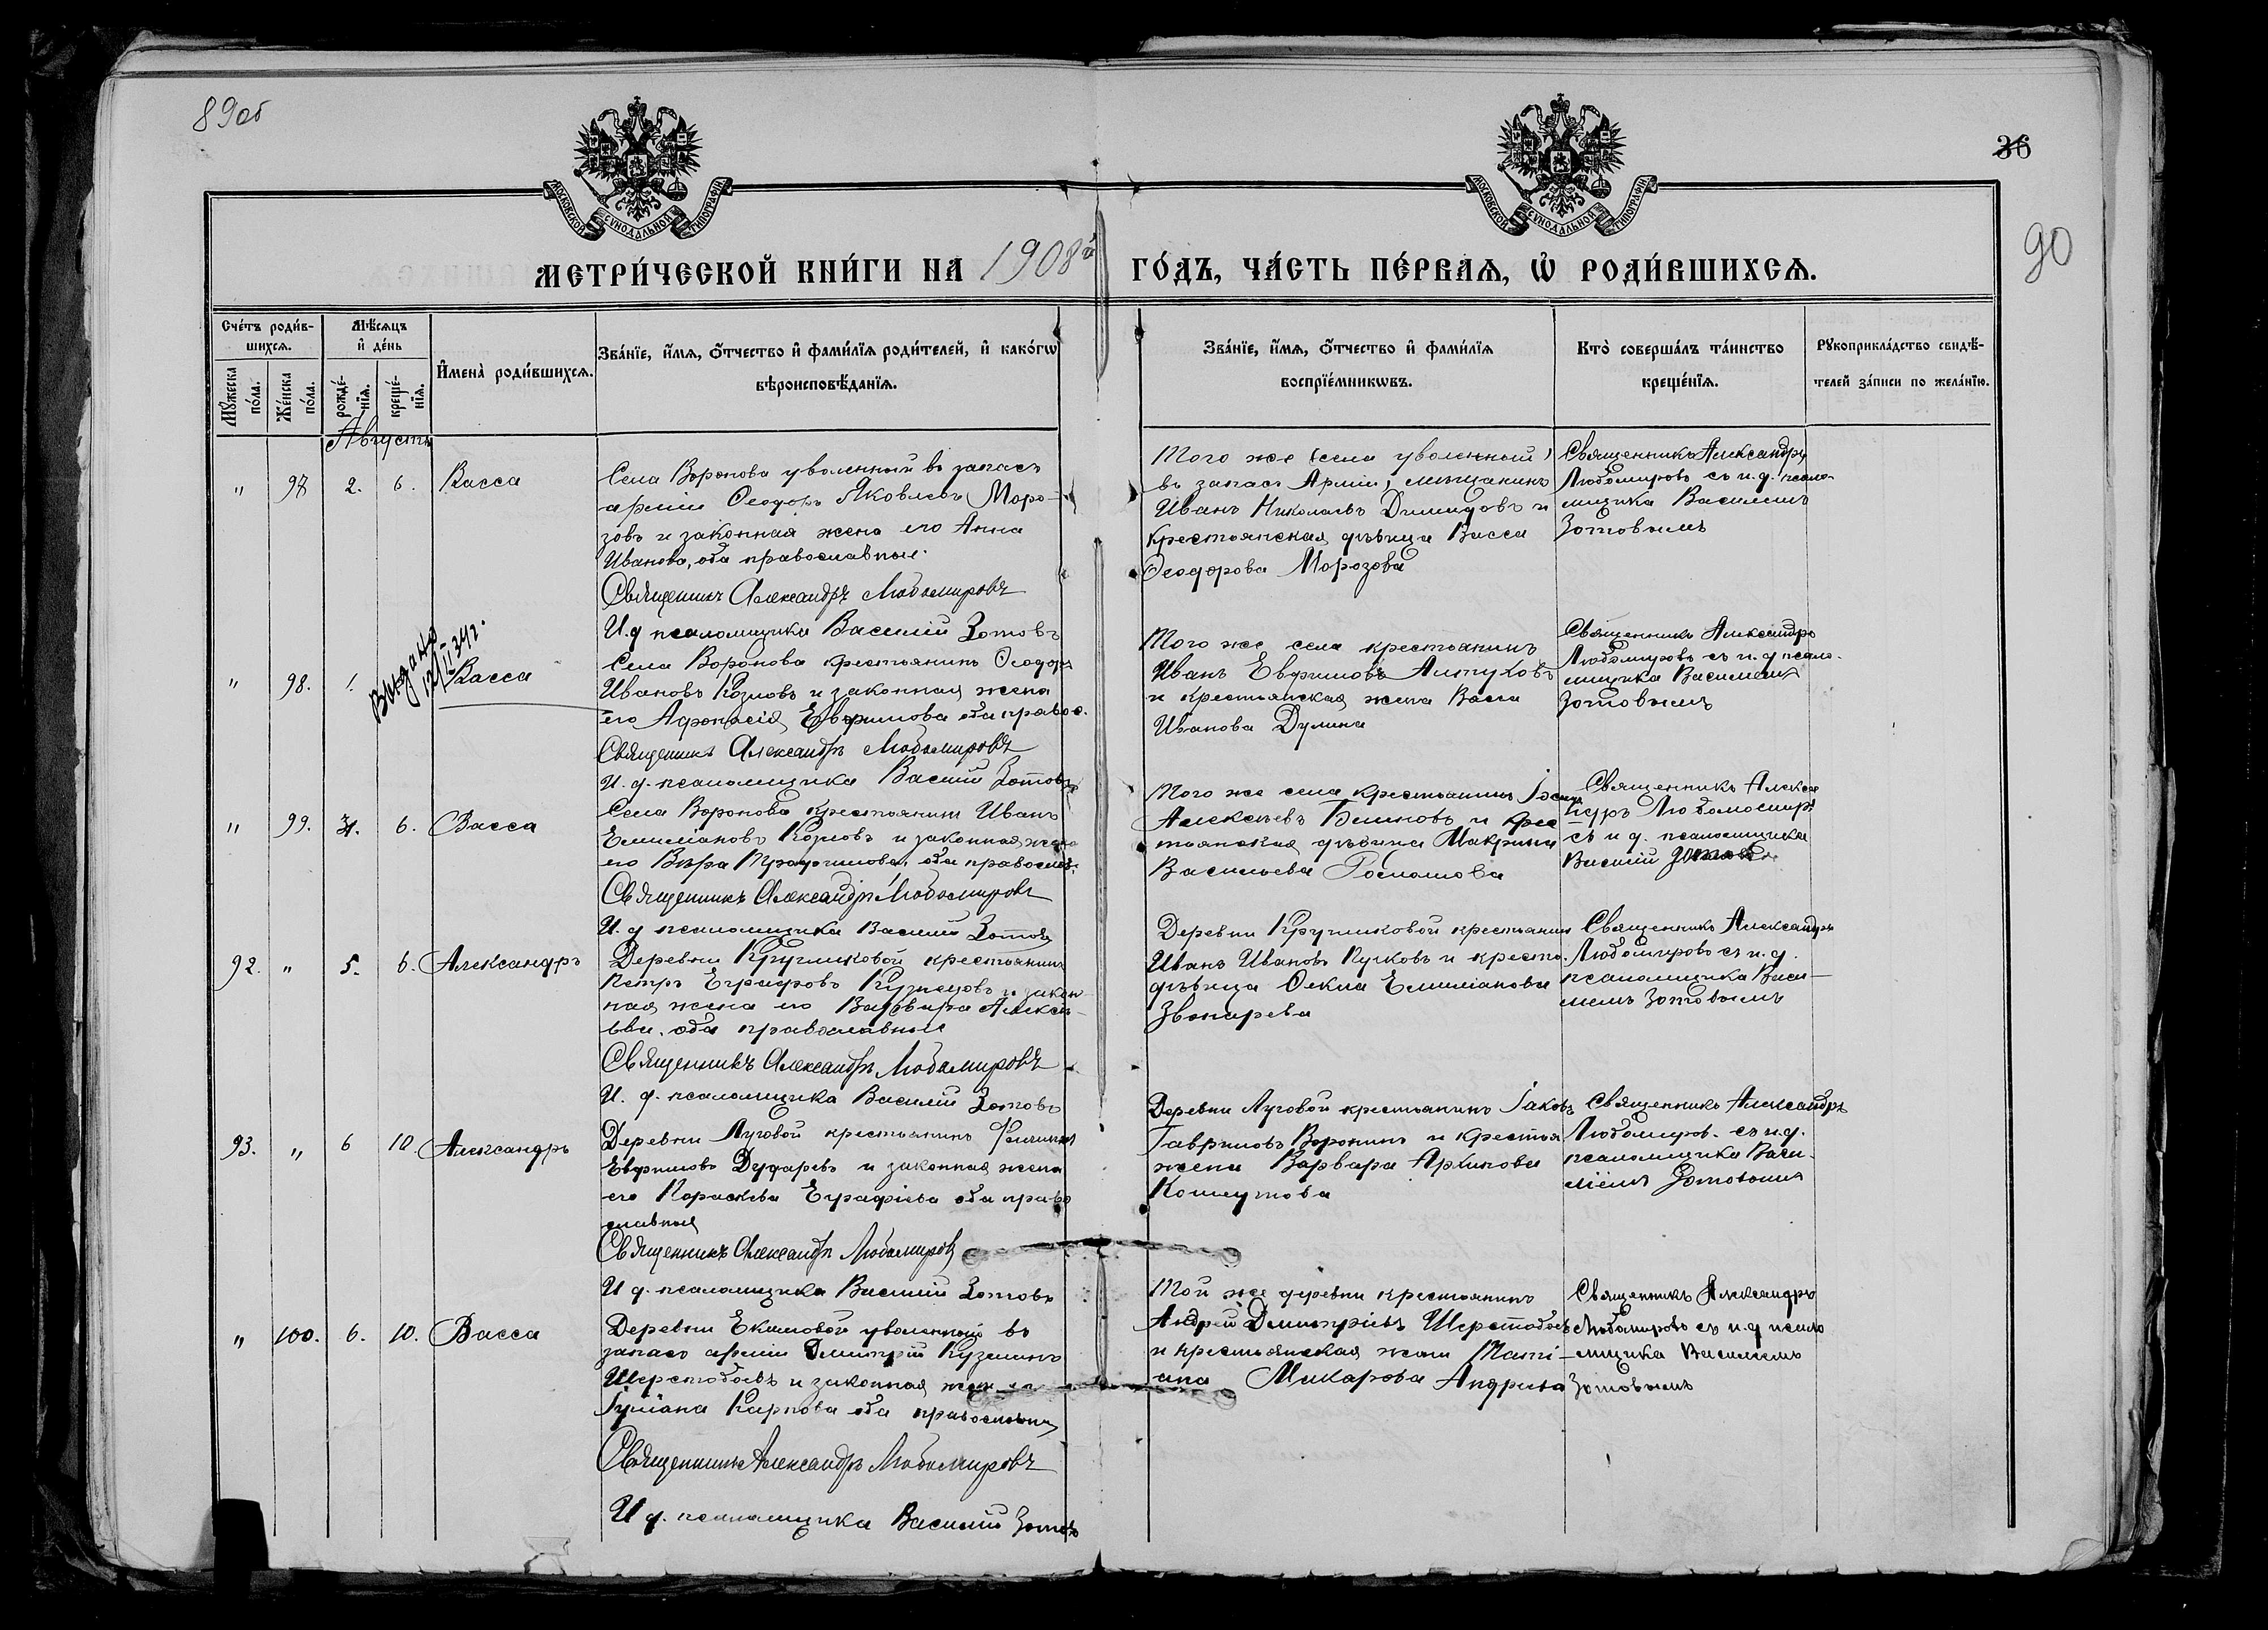 89об
36
90
МОСКОВСКОЙ СѴНОДАЛЬНОЙ ТИПОГРАФІИ
МОСКОВСКОЙ СѴНОДАЛЬНОЙ ТИПОГРАФІИ
МЕТРИ́ЧЕСКОЙ КНИ́ГИ НА 1908й ГО́ДЪ, ЧА́СТЬ ПЕ́РВАѦ, Ѡ҆ РОДИ́ВШИХСѦ.
Сче́тъ роди́в-
шихсѧ.
Мѣ́сѧцъ
и҆ де́нь
Мꙋ́жеска по́ла.
Же́нска по́ла.
рожде́-нїѧ.
креще́-нїѧ.
И҆мена̀ роди́вшихсѧ.
Зва́нїе, и҆́мѧ, ѻ҆́тчество и҆ фами́лїѧ роди́телей, и҆ како́гѡ
вѣроисповѣ́данїѧ.
Зва́нїе, и҆́мѧ, ѻ҆́тчество и҆ фами́лїѧ
воспрїе́мникѡвъ.
Кто̀ соверша́лъ та́инство
креще́нїѧ.
Рꙋкоприкла́дство свидѣ́-
телей за́писи по жела́нїю.
Августъ
" 97 2. 6. Васса
Села Воронова уволенный въ запасъ
арміи Ѳеодоръ Яковлевъ Моро-
зовъ и законная жена его Анна
Иванова, оба православные.
Священникъ Александръ Любомировъ
И.д псаломщика Василій Зотовъ
Того же села уволенный
въ запасъ Арміи, мѣщанинъ
Иванъ Николаевъ Димидовъ и
крестьянская дѣвица Васса
Ѳеодорова Морозова
Священникъ Александръ
Любомировъ съ и.д. псало-
мщика Василіемъ
Зотовымъ
Выдано
12/II 34г.
" 98. 1. Васса
Села Воронова крестьянинъ Ѳеодоръ
Ивановъ Козловъ и законная жена
его Афанасія Евфимова оба правос.
Священникъ Александръ Любомировъ
И.д. псаломщика Василій Зотовъ
Того же села крестьянинъ
Иванъ Евфимовъ
и крестьянская жена Васса
Иванова Дулина
Священникъ Александръ
Любомировъ съ и.д псало-
мщика Василіемъ
Зотовымъ
" 99. 6. Васса
Села Воронова крестьянинъ Иванъ
Емиліановъ Козловъ и законная жена
его Вѣра Трофимова, оба православ.
Священникъ Александръ Любомировъ
И.д псаломщика Василій Зотовъ
Того же села крестьянинъ
Алексѣевъ Блиновъ и крес
тьянская дѣвица Макрина
Васильева
Священникъ Алекса
ндръ Любомомиръ
съ и д. псаломщика
Василій Зотовъ
92. " 5. 6. Александръ
Деревни Кругликовой крестьянинъ
Петръ Евграфовъ Кузнецовъ и закон-
ная жена его Варвара Алексѣ-
ева. оба православные
Священникъ Александръ Любомировъ
И. д. псаломщика Василій Зотовъ
Деревни Кругликовой крестьянин
Иванъ Ивановъ и крестья.
дѣвица Ѳекла Емиліанова
Звонарева
Священникъ Александръ
Любомировъ съ и.д.
псаломщика Васи-
ліемъ Зотовымъ
93. " 6 10. Александръ
Деревни Луговой крестьянинъ Филиппъ
Евфимовъ и законная жена
его Параскева Евграфіева оба право
славныя
Священникъ Александръ Любомировъ
И д. псаломщика Василій Зотовъ
Деревни Луговой крестьянинъ Іаковъ
Гавриловъ Воронинъ и крестья
жена Варвара Архипова
Священникъ Александръ
Любомиров. съ и.д.
псаломщика Васи-
ліемъ Зотовымъ
" 100. 6. 10. Васса
Деревни Екимовой уволенный въ
запасъ арміи Димитрій Кузминъ
Шерстобоевъ и законная жена его
Іуліана Карпова оба православны
Священникъ Александръ Любомировъ
И д. псаломщика Василій Зотовъ
Той же деревни крестьянинъ
Андрей Димитріевъ Шерстобоевъ
и крестьянская жена Тати-
ана Макарова Андреева
Священникъ Александръ
Любомировъ съ и.д псало
мщика Василіемъ
Зотовымъ